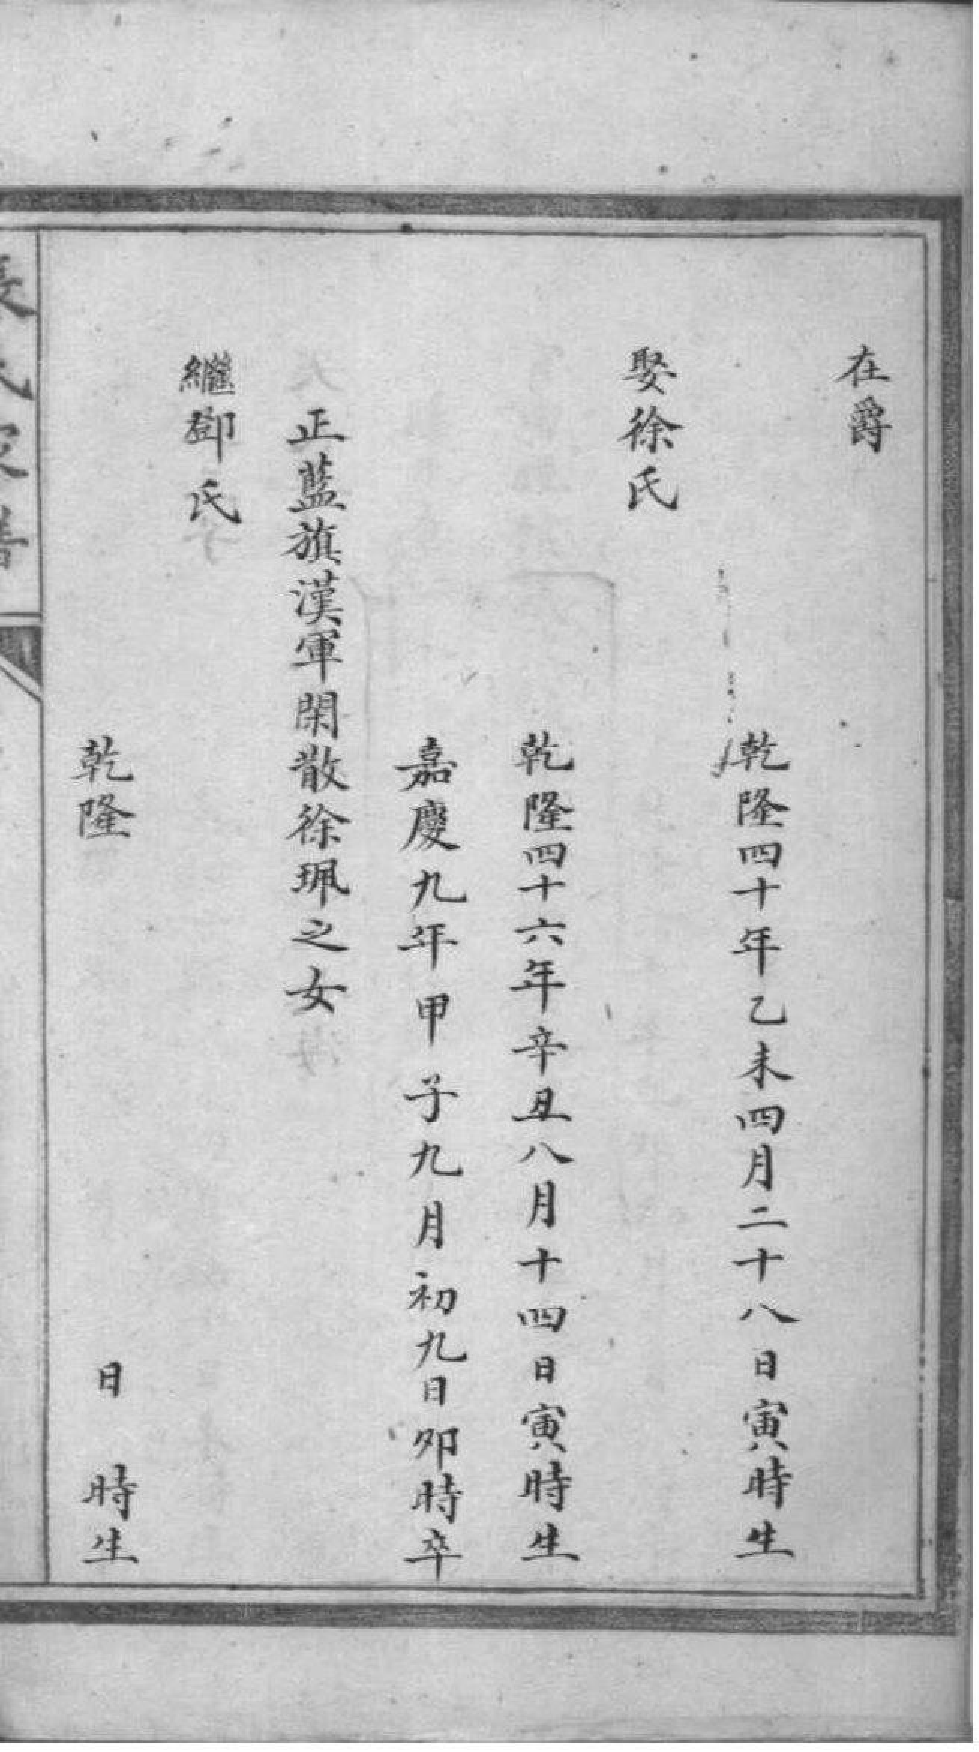 在爵
乾隆四十年乙未四月二十八日寅時生
娶徐氏
乾隆四十六年辛丑八月十四日寅時生
嘉慶九年甲子九月初九日卯時卒
正藍旗漢軍閑散徐珮之女
繼鄧氏
乾隆 日 時生
氏家譜